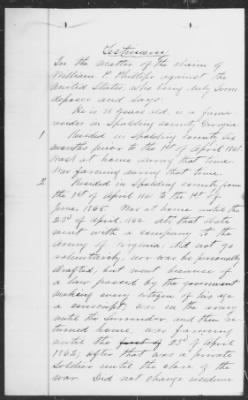 Testimony
In the matter of the claim of
William P. Phillips against the
United States, who being duly sworn
deposes and says:
He is 38 years old, is a farmer
resides in Spalding County, Georgia
1 Resided in Spalding County six
months prior to the 1st of April 1861.
Was at home during that time.
Was farming during that time.
2 Resided in Spalding County from
the 1st of April 1861 to the 1st of
June 1865. Was at home until the
23d of April 1862 at that date
went with a company to the
Army of Virginia. Did not go
voluntarily, nor was he personally
drafted, but went because of
a law passed by the government
making every citizen of his age
a conscript, was in the army
until the surrender and then re
turned home, was farming
until the 23d of April
1862, after that was a private
soldier until the close of the
war. Did not change residence